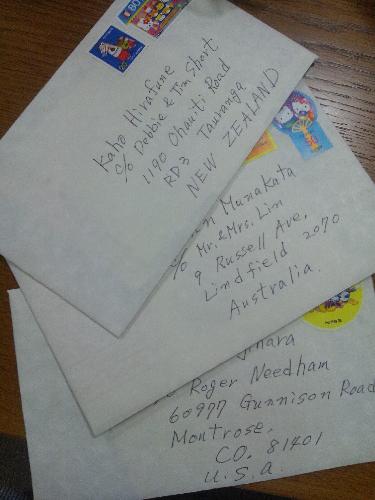 80
Kaho Hirafune
c/o Debbie & Tim Short
1190 Ohauiti Road
RD3 Tauranga
NEW ZEALAND
Munakata
c/o Mr. & Mrs. Lin
9 Russell Ave,
Lindfield 2070
Australia.
Roger Needham
60977 Gunnison Road
Montrose,
CO. 81401
U.S.a.